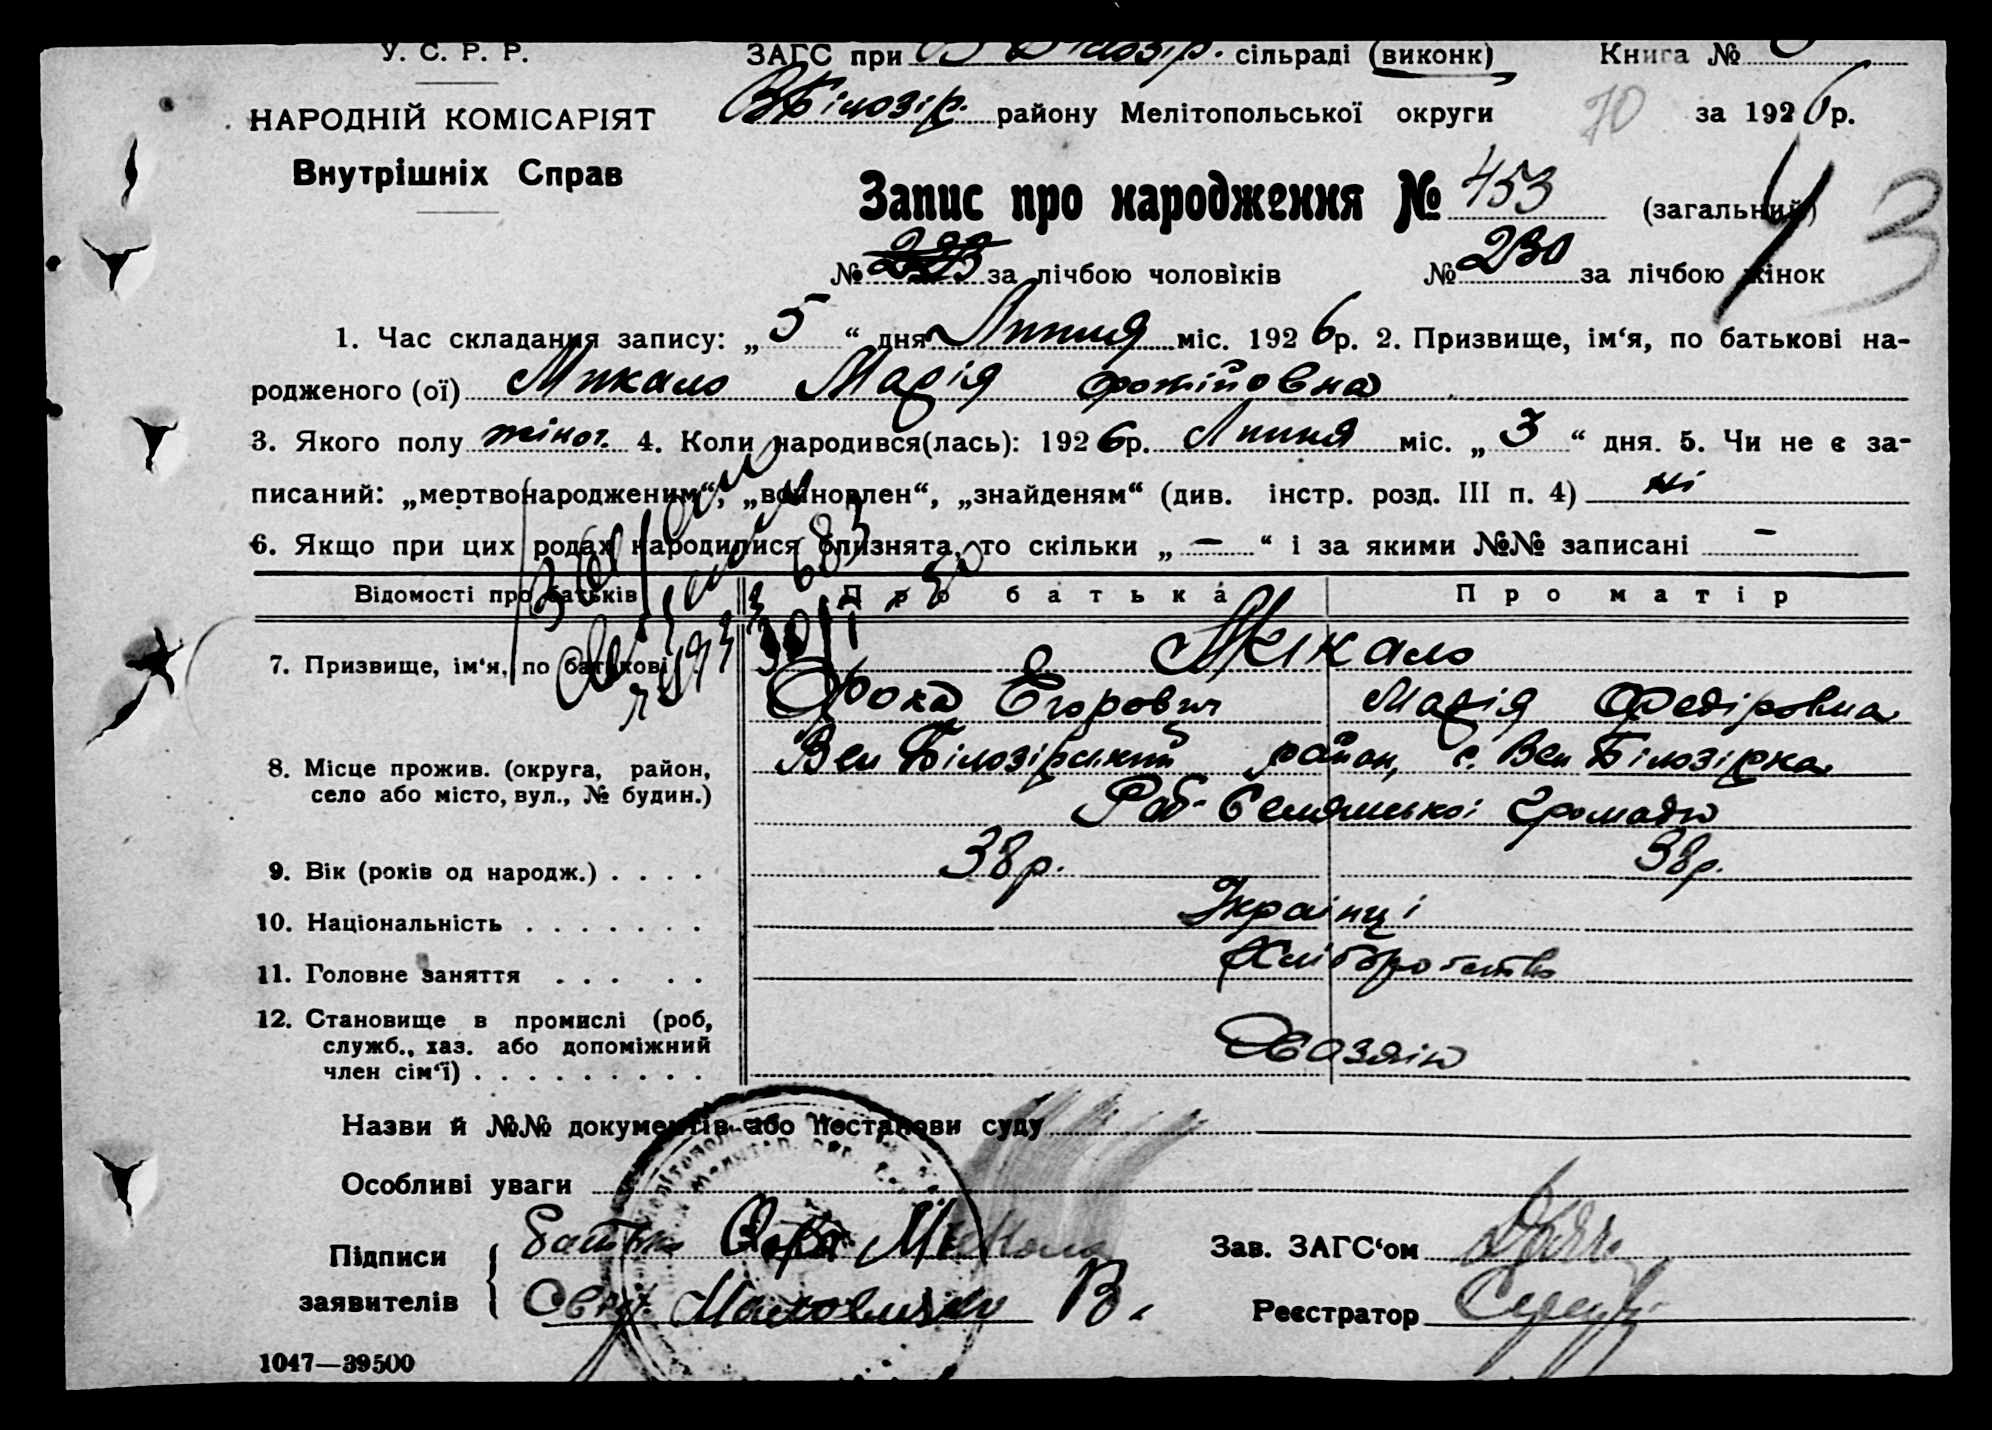 У. С. Р. Р. ЗАГС при В Білозір. сільраді (виконк) Книга №
НАРОДНІЙ КОМІСАРІЯТ
Внутрішніх Справ
ВБілозір. району Мелітопольської округи 70 за 1926 р.
Запис про народження № 453 (загальний)
3
№ за лічбою чоловіків № 230 за лічбою жінок
1. Час складання запису: „5“ дня Липня міс. 1926 р. 2. Призвище, ім‘я, по батькові на-
родженого (ої) Микало Марія Фотіївна
3. Якого полу жіноч. 4. Коли народився(лась): 1926 р. Липня міс. „3“ дня. 5. Чи не є за-
писаний: „мертвонародженим“, „войновлен“, „знайденям“ (див. інстр. розд. III п. 4) ні
6. Якщо при цих родах народилися близнята, то скільки „–“ і за якими №№ записані –
Відомості про батьків Про батька Про матір
7. Призвище, ім‘я, по батькові Мікало
Фока Єгорович Марія Федіровна
8. Місце прожив. (округа, район,
село або місто, вул., № будин.)
Вел Білозірський район, с. Вел Білозірка
громади
9. Вік (років од народж.) . . . . 38 р. 38 р.
10. Національність . . . . . . . Українці
11. Головне заняття . . . . . Хліборобство
12. Становище в промислі (роб,
служб., хаз. або допоміжний
член сім‘ї) . . . . . . . . . Хазяін
Назви й №№ документів або постанови суду
Особливі уваги
Підписи
заявителів
Батько
Зав. ЗАГС‘ом
В.
Реєстратор
1047—39500